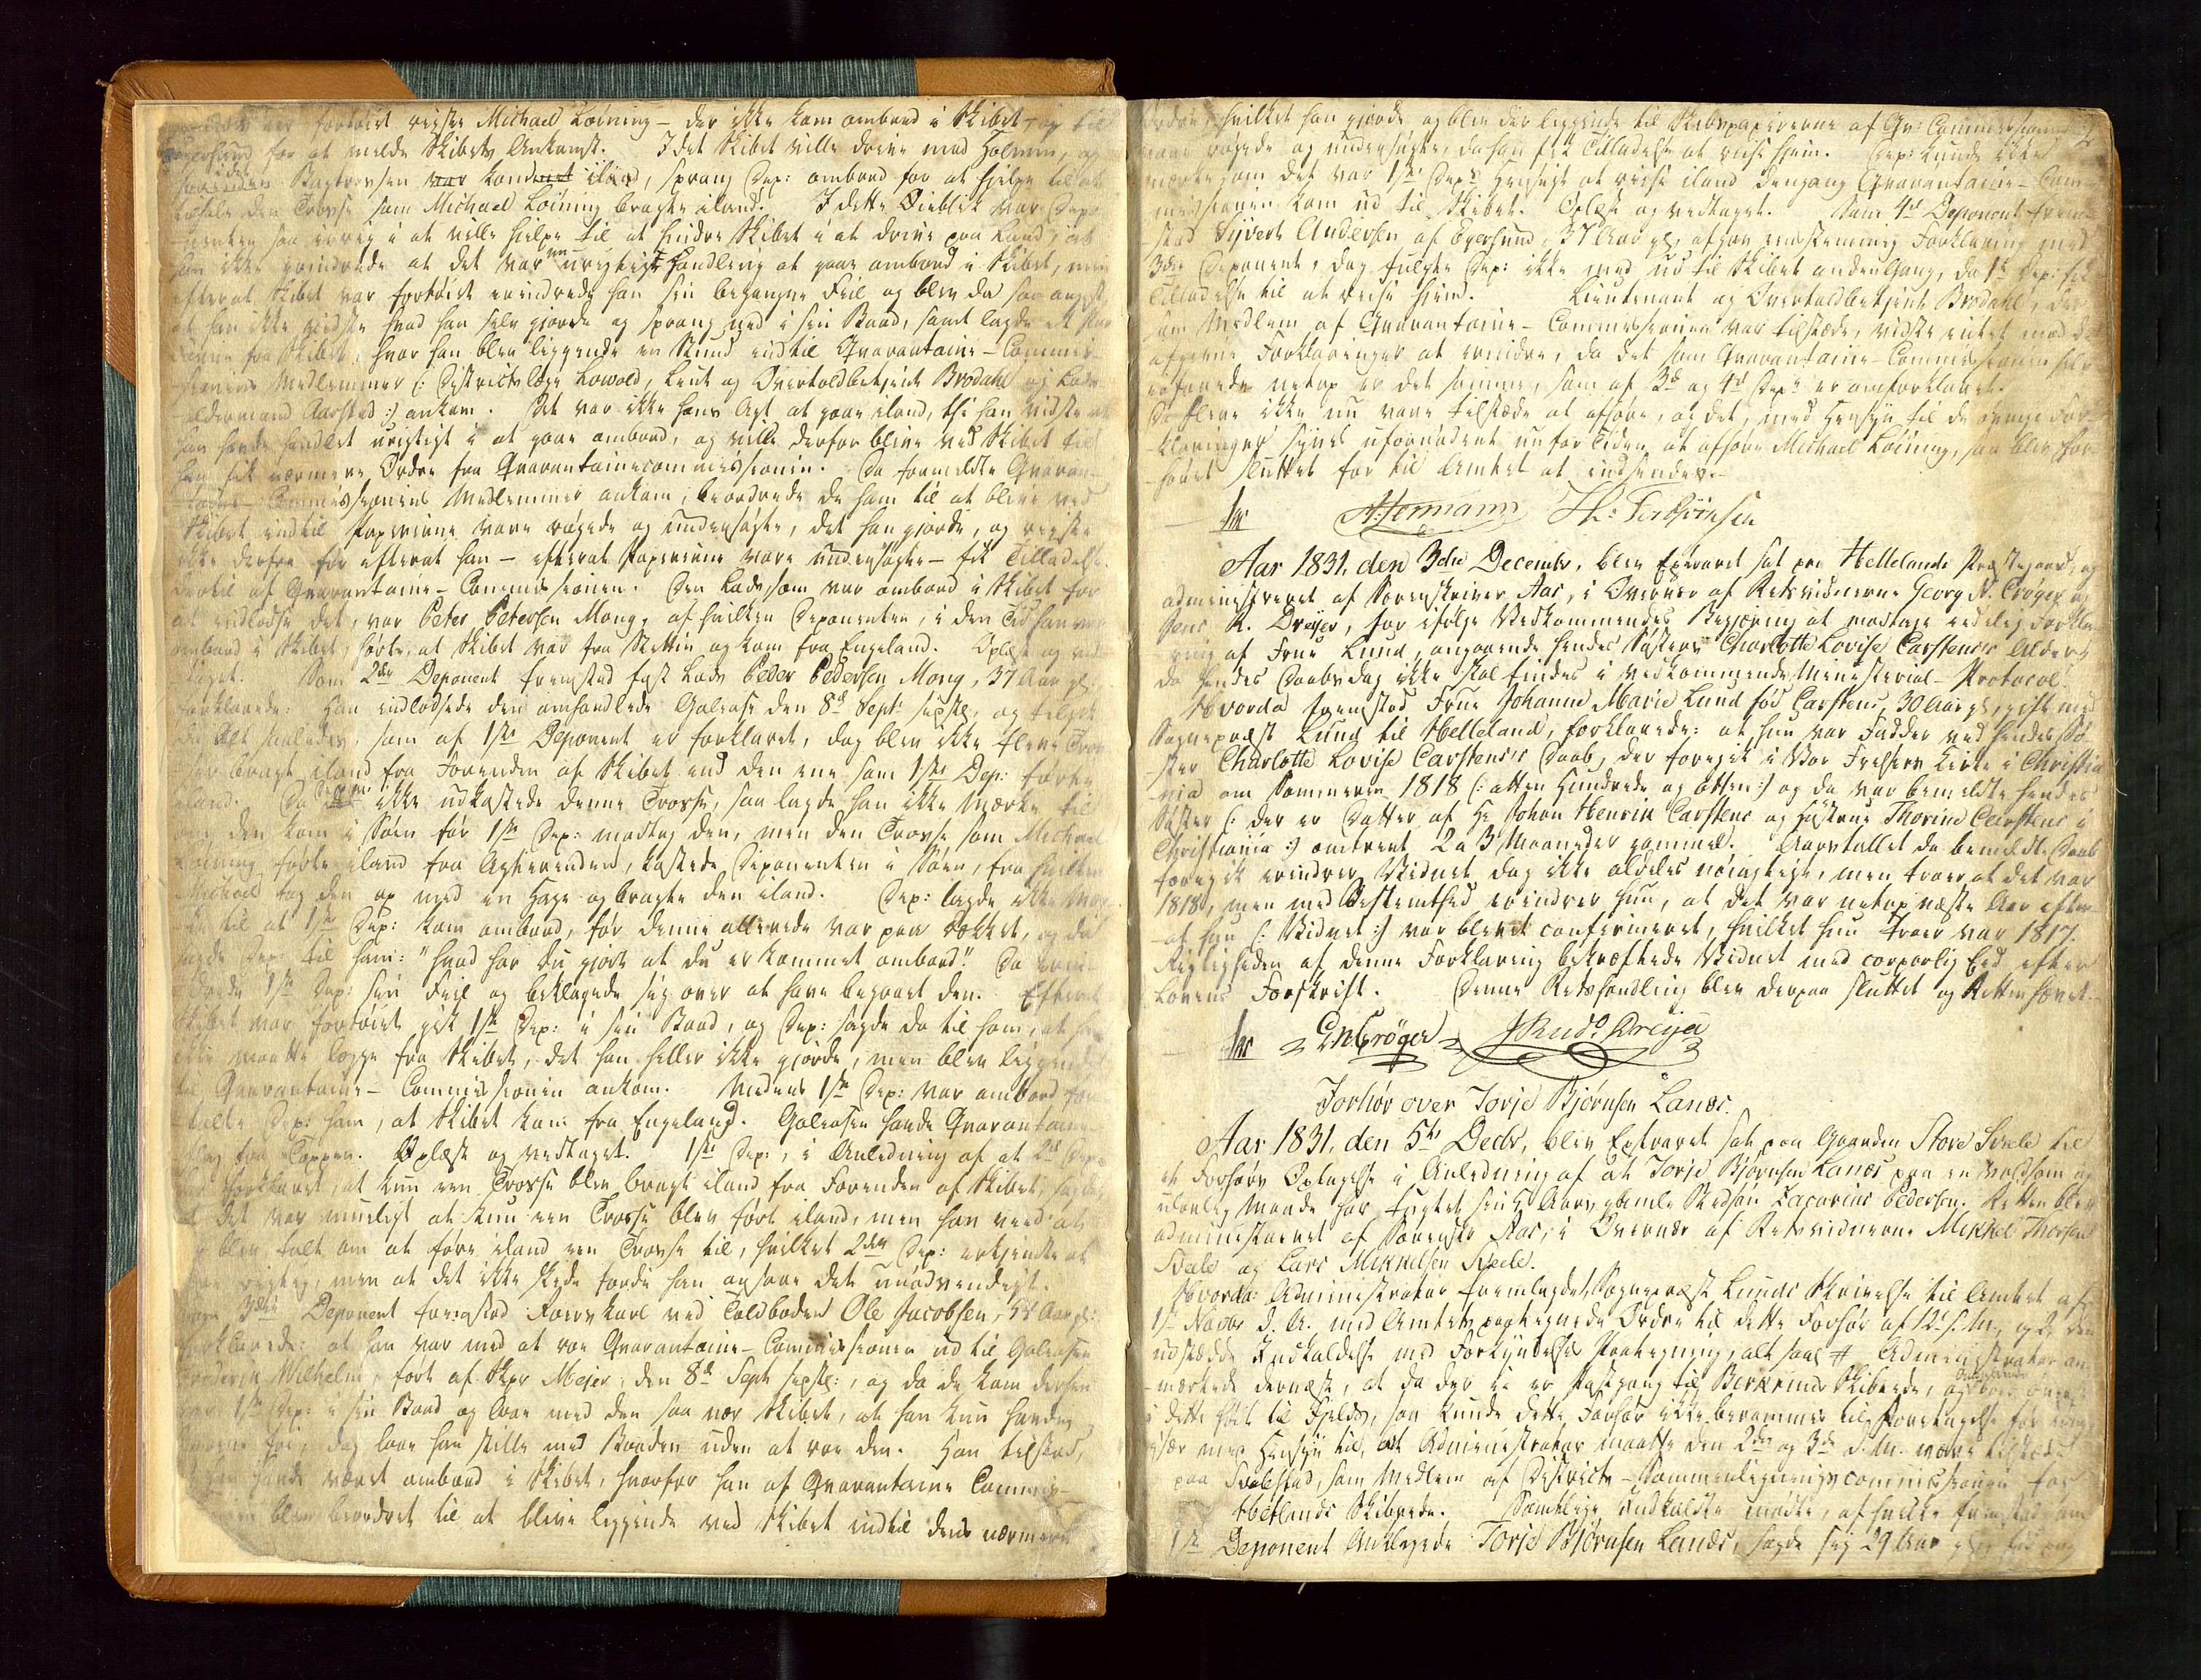 fortøiet reiste Michael Løining – der ikke kom ombord i Skibet – og til
Egersund for at melde Skibets Ankomst. Idet Skibet vilde drive mod Holmen, og
Bagtrossen var iland, sprang Dep: ombord for at hjelpe til at
den Trosse som Michael Løining bragte iland. I dette Øieblik var Depo-
nenten saa ivrig i at ville hjelpe til at hindre Skibet i at drive paa Land, at
han ikke erindrede at det var en urigtig Handling at gaae ombord i Skibet, men
efterat Skibet var fortøiet erindrede han sin begangne Feil og blev da saa angst,
at han ikke vidste hvad han selv gjorde og sprang ned i sin Baad, samt lagde et
fra Skibet, hvor han blev liggende en Stund indtil Qvarantaine-Commis-
sionens Medlemmer (: Districtslæge Lowold, Leut og Overtoldbetjent Brodahl og Lods-
oldermand Aarstad :) ankom. Det var ikke hans Agt at gaae iland, thi han vidste at
han havde handlet urigtigt i at gaae ombord, og vilde derfor blive ved Skibet til
han fik nærmere Ordre fra Qvarantainecommissionen. Da formeldte Qvaran-
taine-Commissionens Medlemmer ankom, beordrede de ham til at blive ved
Skibet indtil Papirerne vare røgede og undersøgte, det han gjorde, og reiste
ikke derfra før efterat han – efterat Papirerne vare undersøgte – fik Tilladelse
dertil af Qvarantaine-Commissionen. Den Lods som var ombord i Skibet for
at indlodse det, var Peter Petersen Mong, af hvilken Deponenten, i den Tid han var
ombord i Skibet, hørte, at Skibet var fra Stettin og kom fra Engeland. Oplæst og ved-
taget. Som 2den Deponent fremstod fast Lods Peder Pedersen Mong, 37 Aar gl:
forklarede: Han indlodsede den omhandlede Galease den 8de Septr sidstl, og tilgik
da Alt saaledes, som af 1ste Deponent er forklaret, dog blev ikke flere Tros-
ser bragt iland fra Forenden af Skibet end den ene som 1ste Dep: førte
iland. Da ikke udkastede denne Trosse, saa lagde han ikke Mærke til
om den kom i Søen før 1ste Dep: modtog den, men den Trosse som Michael
Løining førte iland fra Agterenden, kastede Deponenten i Søen, fra hvilken
Michael tog den op med en Hage og bragte den iland. Dep: lagde ikke Mær-
ke til at 1ste Dep: kom ombord, før denne allerede var paa Dækket, og da
sagde Dep: til ham: "hvad har du gjort at du er kommet ombord". Da erin-
drede 1ste Dep: sin Feil og beklagede sig over at have begaaet den. Efterat
Skibet var fortøiet gik 1ste Dep: i sin Baad, og Dep: sagde da til ham, at han
ikke maatte lægge fra Skibet, det han heller ikke gjorde, men blev liggende
til Qvarantaine-Commissionen ankom. Medens 1ste Dep: var ombord for-
talte Dep: ham, at Skibet kom fra Engeland. Galeasen havde Qvarantaine-
flag fra Toppen. Oplæst og vedtaget. 1ste Dep:, i Anledning af at 2den Dep:
har forklaret, at kun een Trosse blev bragt iland fra Forenden af Skibet, sagde
at det var mueligt at kun een Trosse blev ført iland, men han veed at
der blev talt om at føre iland een Trosse til, hvilket 2den Dep: erkjendte at
være rigtigt, men at det ikke skede fordi han ansaae det unødvendigt.
Som 3die Deponent fremstod Roerskarl ved Toldboden Ole Jacobsen, 54 Aar gl:
forklarede: at han var med at roe Qvarantaine-Commissionen ud til Galeasen
Frederik Wilhelm, ført af Skpr Mejer, den 8de Septr sidstl:, og da de kom dertil
var 1ste Dep: i sin Baad og laae med den saa nær Skibet, at han kun havde
Aarerne fri, dog laae han stille med Baaden uden at roe den. Han tilstod,
at han havde været ombord i Skibet, hvorfor han af Qvarantaine Commis-
sionen blev beordret til at blive liggende ved Skibet indtil dens nærmere
Ordre, hvilket han gjorde og blev der liggende til Skibspapirerne af Qv: Commissionen 2
vare røgede og undersøgte, da han fik Tilladelse at reise hjem. Dep: kunde ikke
mærke som det var 1ste Deps Hensigt at reise iland dengang Qvarantaine-Com-
missionen kom ud til Skibet. Oplæst og vedtaget. Som 4de Deponent frem-
stod Sivert Andersen af Egersund, 37 Aar gl, afgav eensstemmig Forklaring med
3die Deponent, dog fulgte Dep: ikke med ud til Skibet anden Gang, da 1ste Dep: fik
Tilladelse til at reise hjem. Lieutenant og Overtoldbetjent Brodahl, der
som Medlem af Qvarantaine-Commissionen var tilstæde, vidste intet mod de
afgivne Forklaringer at erindre, da det som Qvarantaine-Commissionen selv
erfarede netop er det samme, som af 3die og 4de Dep: er omforklaret.
Da flere ikke nu vare tilstæde at afhøre, og det, med Hensyn til de øvrige For-
klaringer synes ufornødent nu for Tiden at afhøre Michael Løining, saa blev For-
høret sluttet for til Amtet at indsendes.
Aas Hermann Th: Torbjörnsen
Aar 1831, den 3die Decembr, blev Extraret sat paa Hellelands Præstegaard, og
administreret af Sorenskriver Aas, i Overvær af Retsvidnerne Georg N. Crøger og
Jens R. Dreyer, for ifølge Vedkommendes Begjering at modtage eedelig Forkla-
ring af Frue Lund, angaaende hendes Søsters Charlotte Lovise Carstens's Alder,
da hendes Daabsdag ikke skal findes i vedkommende Ministerial-Protocol.
Hvorda fremstod Frue Johanne Marie Lund fød Carstens, 30 Aar gl, gift med
Sognepræst Lund til Helleland, forklarede: at hun var Fadder ved hendes Sø-
ster Charlotte Lovise Carstens's Daab, der foregik i Vor Frelsers Kirke i Christia-
nia om Sommeren 1818 (: atten Hundrede og atten :) og da var bemeldte hendes
Søster (: der er Datter af Hr Johan Henrik Carstens og Hustrue Thorine Carstens i
Christiania :) omtrent 2 a 3 Maaneder gammel. Aarstallet da bemeldte Daab
foregik erindrer Vidnet dog ikke aldeles nøiagtigt, men troer at det var
1818, men med Bestemthed erindrer hun, at det var netop næste Aar efter
at hun (: Vidnet :) var blevet confirmeret, hvilket hun troer var 1817.
Rigtigheden af denne Forklaring bekræftede Vidnet med corporlig Eed efter
Lovens Forskrift. Denne Retshandling blev derpaa sluttet og Retten hævet.
Aas GNCrøger JRud. Dreyer
Forhør over Torje Bjørnsen Lanes.
Aar 1831, den 5te Decbr, blev Extraret sat paa Gaarden Store Svele til
et Forhørs Optagelse i Anledning af at Torje Bjørnsen Lanes paa en voldsom og
ulovlig Maade har tugtet sin Aars gamle Stedsøn Zacarias Pedersen. Retten blev
administreret af Sorenskr Aas, i Overvær af Retsvidnerne Mikkel Thorsen
Svele og Lars Mikkelsen Svele.
Hvorda: Administrator fremlagde Sognepræst Lunds Skrivelse til Amtet af
1ste Novbr d. A. med Amtets paategnede Ordre til dette Forhør af 12 s. M., og de
udstædte Indkaldelse med Forkyndelses Paategning, alt saal. # Administrator an-
mærkede dernæst, at da der ei er Postgang til Birkrems Skibrede,
i dette Høst til Fjelds, saa kunde dette Forhør ikke berammes til Foretagelse før
især med Hensyn til, at Administrator maatte den 2den og 3die d. M. være tilstæde
paa Svalestad, som Medlem af Districts-Sammenligningscommissionen for
Hetlands Skibrede. Samtlige Indkaldte mødte, af hvilke fremstod som
1ste Deponent Anklagede Torje Bjørnsen Lanes, sagde sig 29 Aar